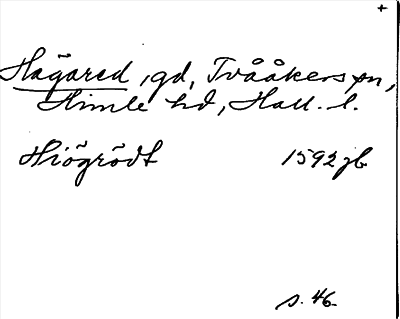 +
Hågared, gd, Tvååkers sn,
Himle hd, Hall. l.
Hiögrödt 1592 jb
s. 46